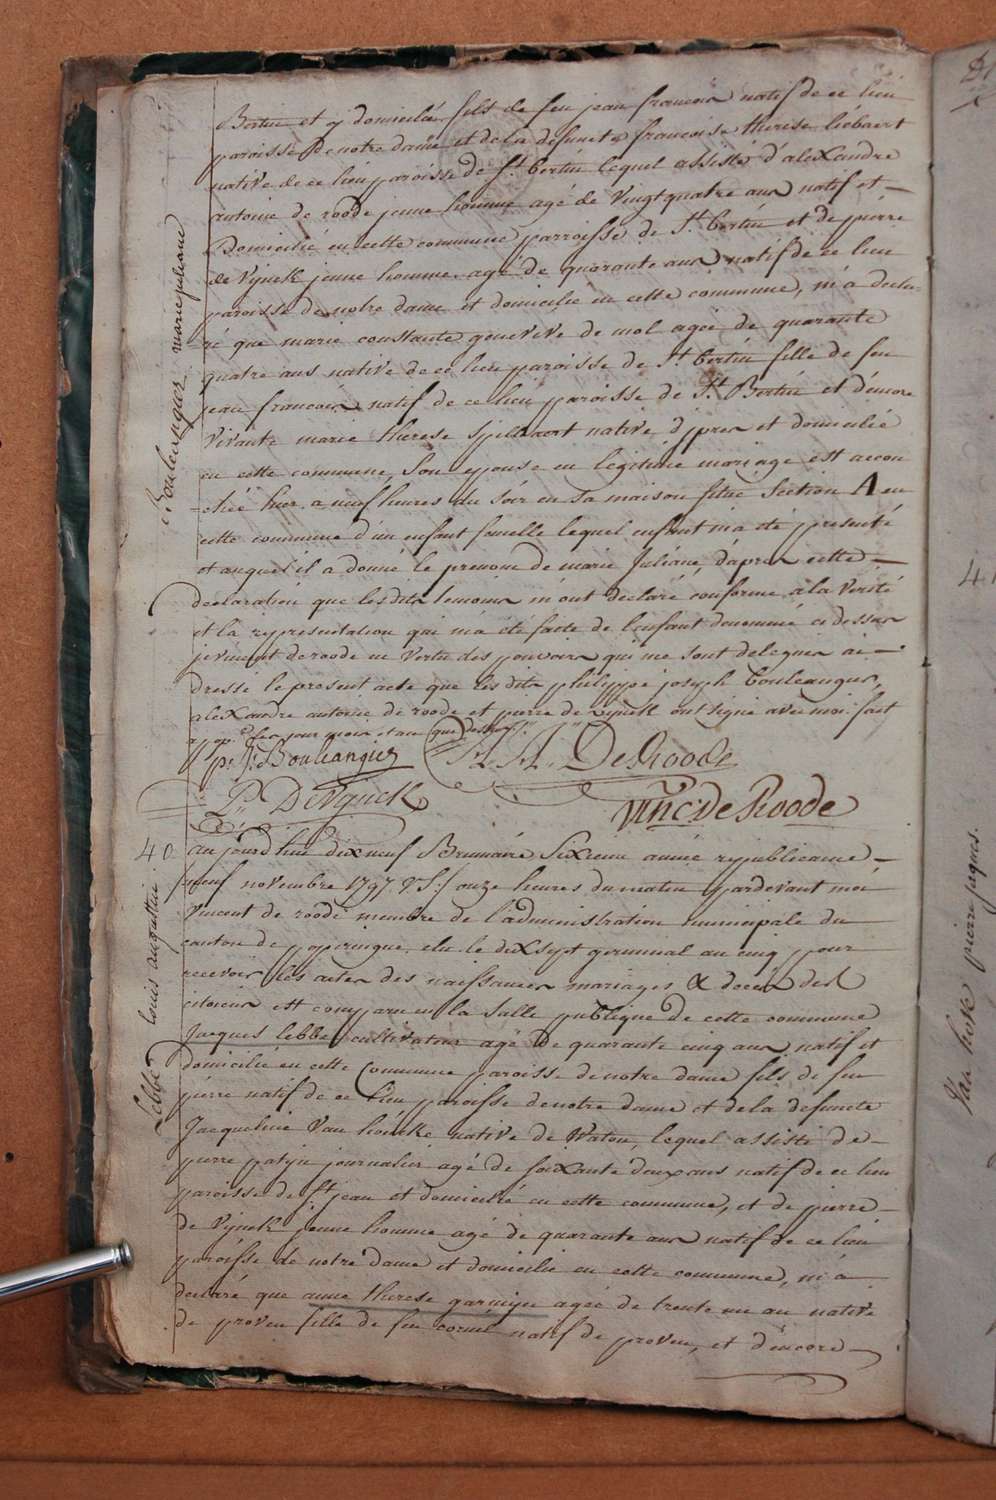 Bertin et y domicilié fils de feu jean francois natif de ce lieu
paroisse de notre dame et de la defunte francoise therese liebaert
native de ce lieu paroisse de St. bertin lequel assisté d'alexandre
antoine de roode jeune homme agé de vingt quatre ans natif et
Domicilié en cette commune parroisse de St. bertin et de pierre
de Vynck jeune homme agé de quarante ans natif de ce lieu
paroisse de notre dame et domicilie en cette commune, m'a decla-
ré que marie constante genevive de mol agée de quarante
quatre ans native de ce lieu paroisse de St. bertin fille de feu
jean francois natif de ce lieu paroisse de St. Bertin et d'encore
vivante marie therese Spillaert native d'ypres et domicilié
en cette commune, son epouse en legitime mariage est accou
chée hier a neuf heures du soir en sa maison situé Section A en
cette commune d'un enfant femelle lequel enfant m'a été presenté
et auquel il a donné le prenom de marie Juliane, d'apres cette
declaration que les dits temoins m'ont declaré conforme a la verité
et la representation qui m'a été faite de l'enfant denommé ci dessus
je vincent de roode en vertu des pouvoirs qui me sont delegués ai
dressé le present acte que les dits philyppe joseph bouleangier,
alexandre antoine de roode et pierre de vynck ont signé avec moi. fait
a pop. les jour mois et an que dessus
p. J: Boulangiez
A. A. DeRoode
P. DeVynck
Vinc De Roode
Bouleangiez marie juliane
40
aujourd'hui dix neuf Brumaire Sixieme année republicaine
neuf novembre 1797 V.S./ onze heures du matin pardevant moi
Vincent de roode membre de l'administration municipale du
canton de poperingue elu le dix sept germinal an cinq pour
recevoir les actes des naissances mariages & deces des
citoiens est comparu en la salle publique de cette commune
Jacques lebbe cultivateur agé de quarante cinq ans natif et
domicilié en cette commune paroisse de notre dame fils de feu
pierre natif de ce lieu paroisse de notre dame et de la defuncte
Jacqueline Van houcke native de Watou, lequel assisté de
pierre patyn journalier agé de soixante deux ans natif de ce lieu
paroisse de St. jean et domicilié en cette commune, et de pierre
de Vynck jeune homme agé de quarante ans natif de ce lieu
paroisse de notre dame et domicilié en cette commune, m'a
declaré que anne therese garmyn agée de trente un an native
de proven fille de feu cornil natif de proven, et d'encore
Lebbe louis augustin
41
Van hock pierre jaques.